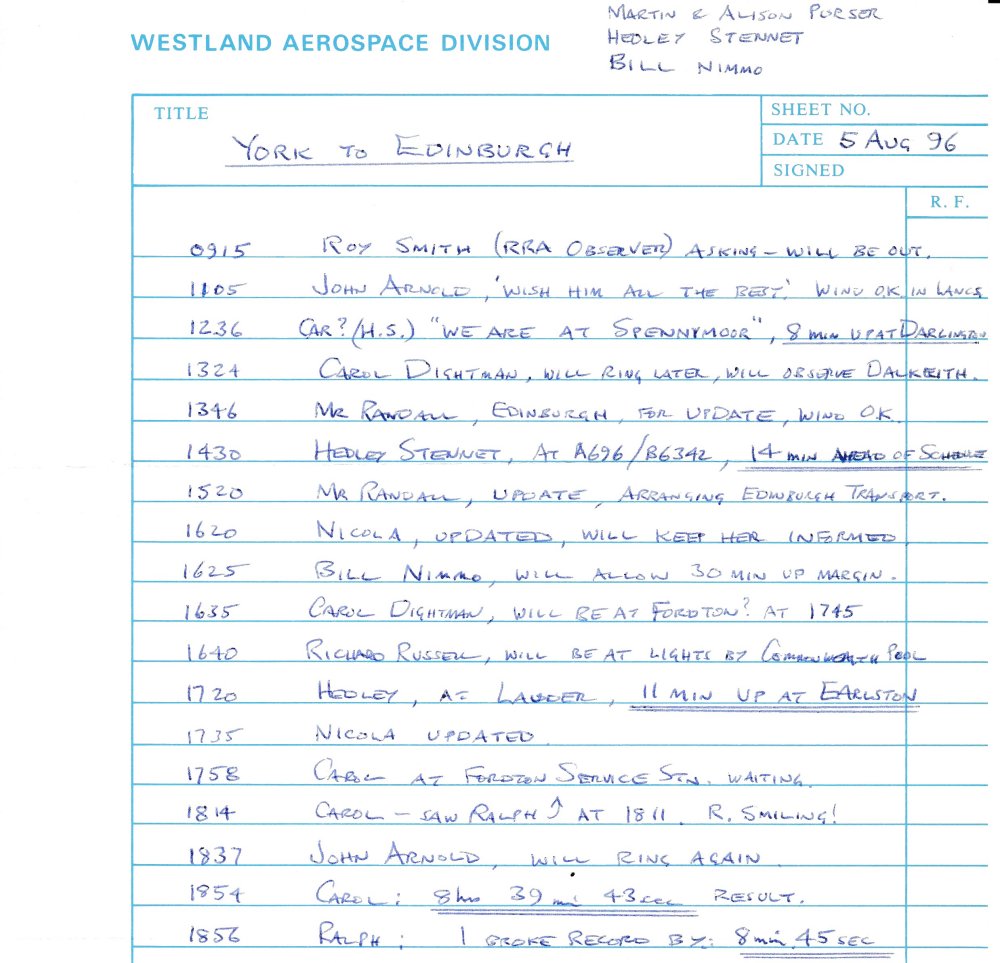 MARTIN & ALISON PURSER
HEDLEY STENNET
BILL NIMMO
WESTLAND AEROSPACE DIVISION
TITLE
YORK TO EDINBURGH
SHEET NO.
DATE 5 AUG 96
SIGNED
R. F.
0915 ROY SMITH (RRA OBSERVER) ASKING – WILL BE OUT.
1105 JOHN ARNOLD, 'WISH HIM ALL THE BEST.' WIND O.K. IN LANCS
1236 CAR? (H.S.) "WE ARE AT SPENNYMOOR", 8 min UP AT DARLINGTON
1324 CAROL DIGHTMAN, WILL RING LATER, WILL OBSERVE DALKEITH.
1346 MR RANDALL, EDINBURGH, FOR UPDATE, WIND O.K.
1430 HEDLEY STENNET, AT A696/B6342, 14 min AHEAD OF SCHEDULE
1520 MR RANDALL, UPDATE, ARRANGING EDINBURGH TRANSPORT.
1620 NICOLA, UPDATED, WILL KEEP HER INFORMED
1625 BILL NIMMO, WILL ALLOW 30 MIN UP MARGIN.
1635 CAROL DIGHTMAN, WILL BE AT FORDTON? AT 1745
1640 RICHARD RUSSELL, WILL BE AT LIGHTS BY COMMONWEALTH POOL
1720 HEDLEY, AT LAUDER, 11 MIN UP AT EARLSTON
1735 NICOLA UPDATED
1758 CAROL AT FORDTON SERVICE STN. WAITING.
1814 CAROL – SAW RALPH ↑ AT 1811. R. SMILING!
1837 JOHN ARNOLD, WILL RING AGAIN
1854 CAROL: 8 hrs 39 min 43 sec RESULT.
1856 RALPH: I BROKE RECORD BY: 8 min 45 SEC